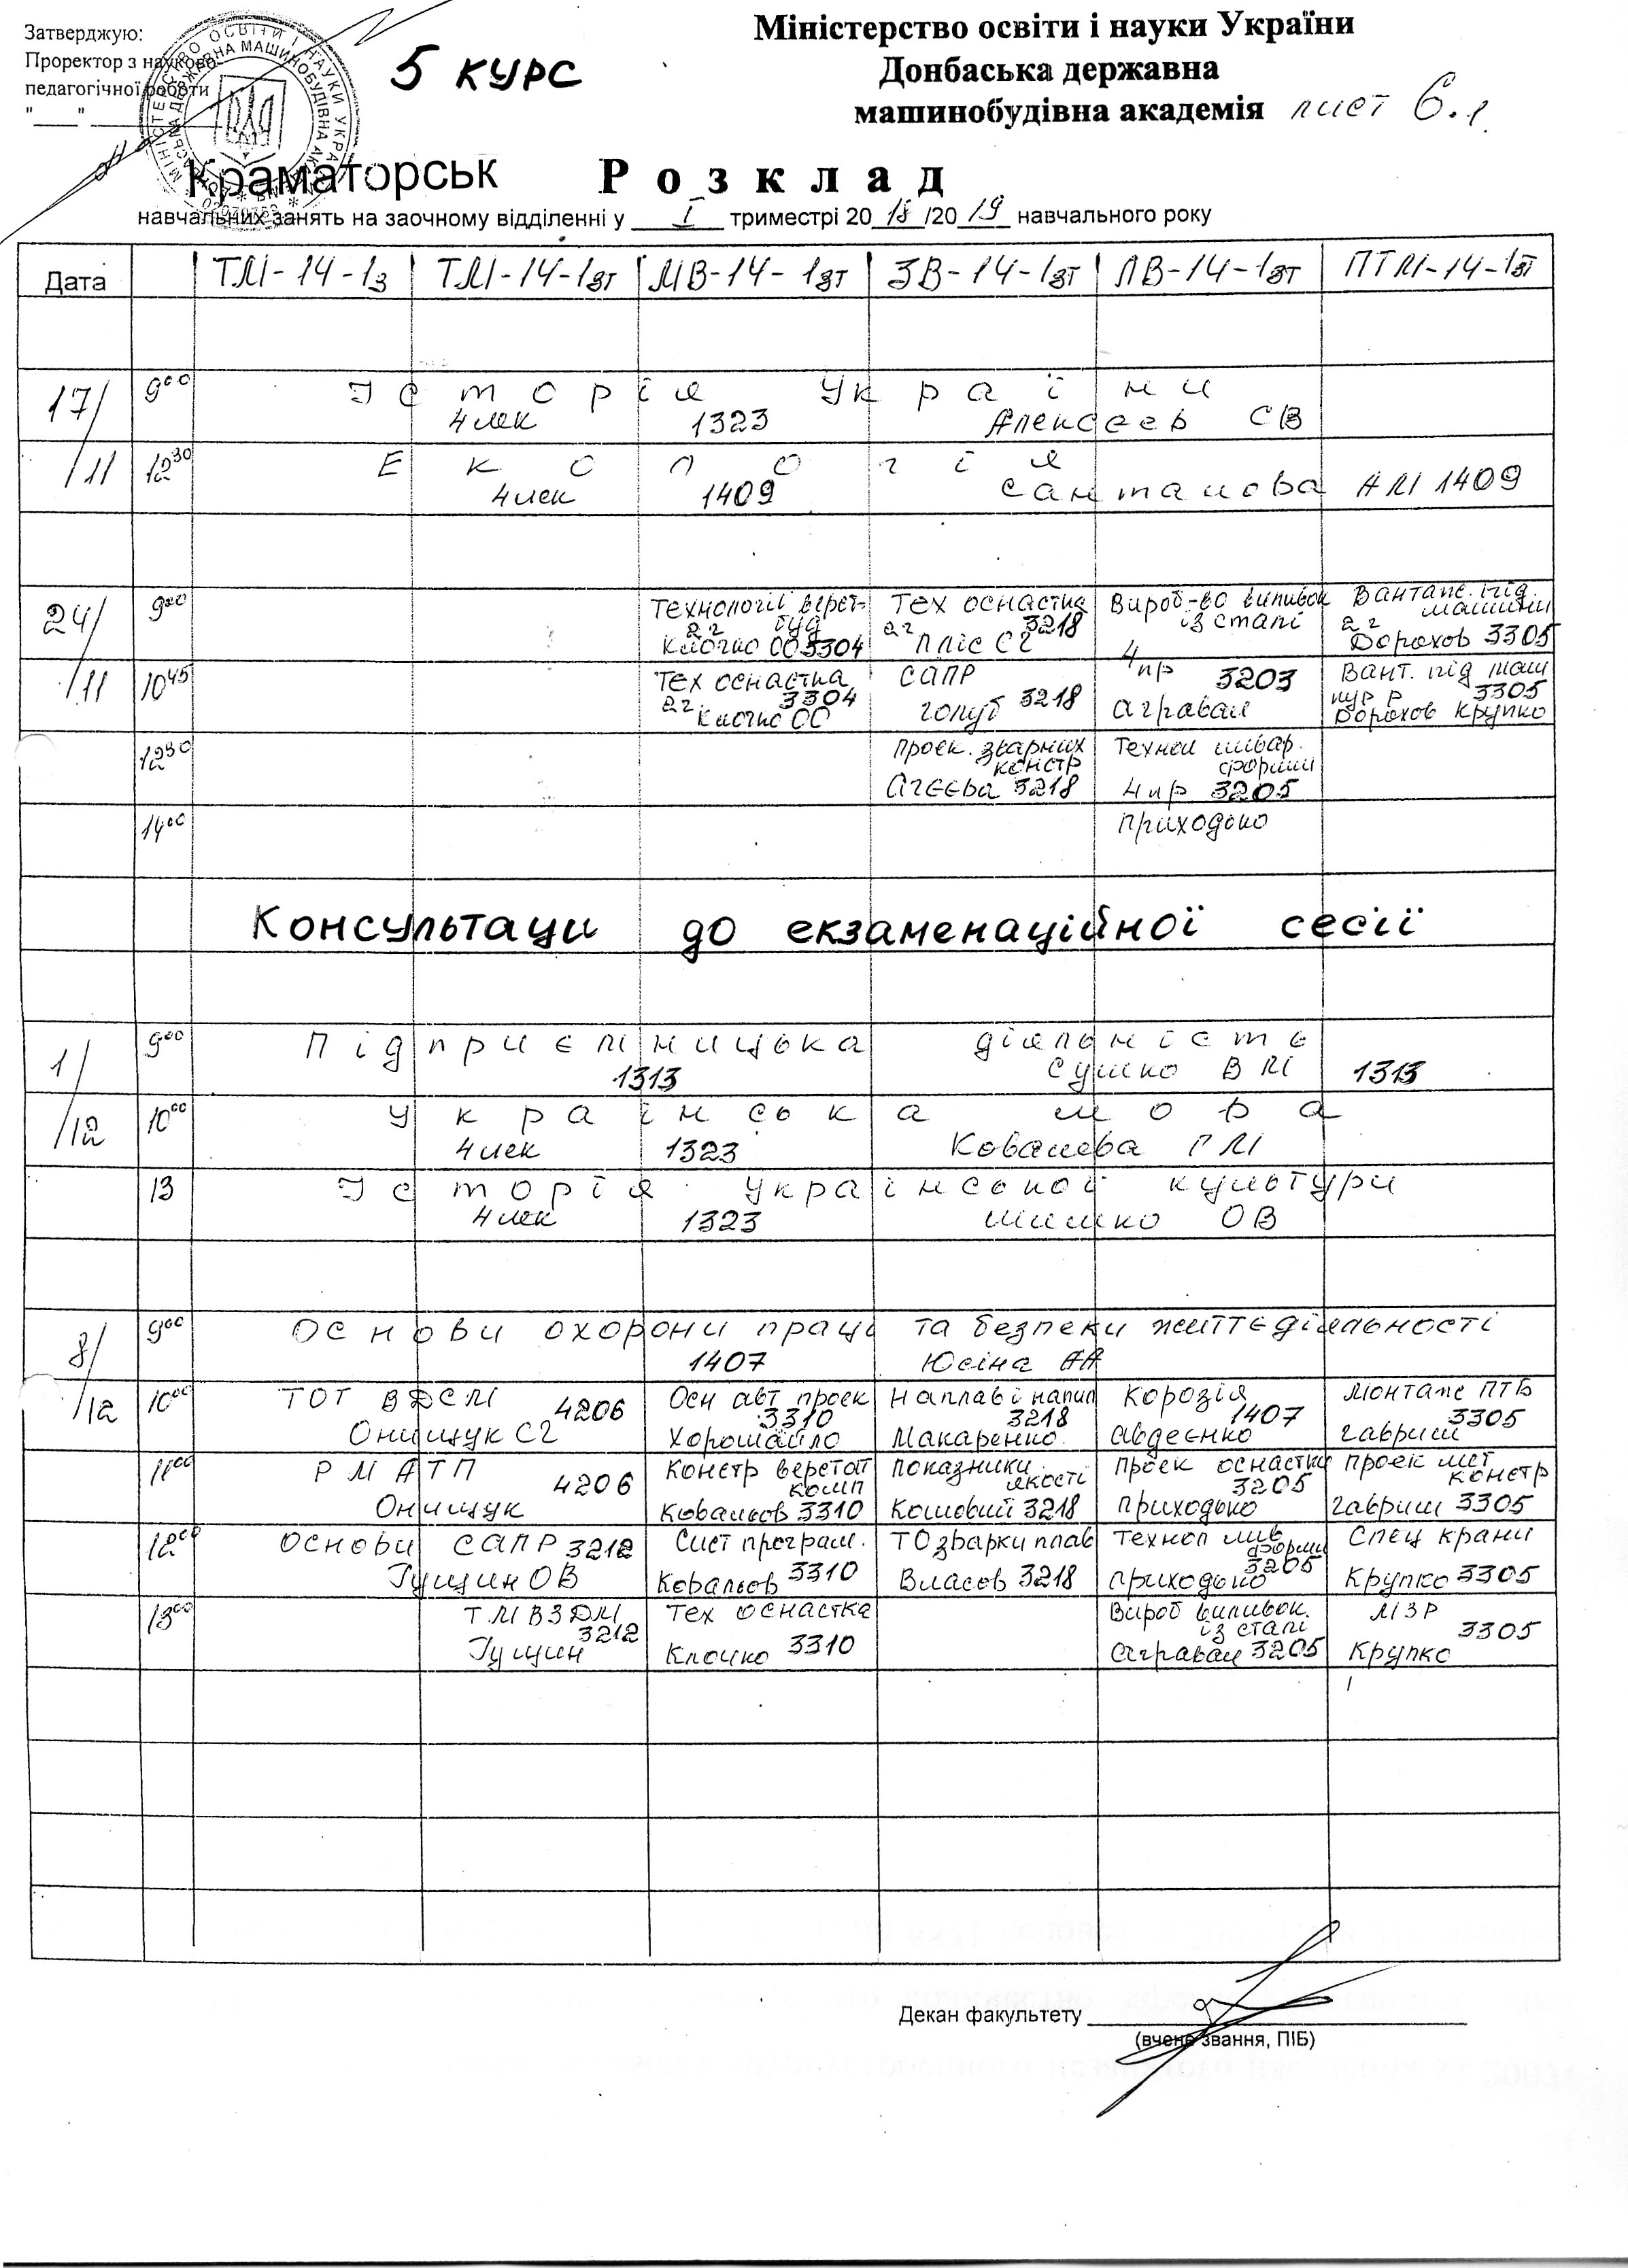 Затверджую:
Проректор з науково-
педагогічної роботи
"____" ____________
5 КУРС
Міністерство освіти і науки України
Донбаська державна
машинобудівна академія лист 6.1
Краматорськ Розклад
навчальних занять на заочному відділенні у I триместрі 2018/2019 навчального року
Дата ТМ-14-1з ТМ-14-1зт МВ-14-1зт ЗВ-14-1зт ЛВ-14-1зт ПТМ-14-1зт
17/11 900 Історія України
4 лек 1323 Алексеєв СВ
12 30 Екологія
4 лек 1409 Санталова АМ 1409
24/11 9 00
Технології верст-
буд
2 г
Клочко ОО 3304
Тех оснастка
2 г 3218
Пліс СГ
Вироб-во виливок
із сталі
4 пр 3203
Аграван
Вантаж. під.
машини
2 г
Дорохов 3305
10 45
Тех оснастка
2 г. 3304
Клочко ОО
САПР
Голуб 3218
Вант. під маш
кур р 3305
Дорохов Крупко
12 30
Проек. зварних
констр
Агєєва 3218
Технол ливар.
форми
4 пр 3205
14 00 Приходько
Консультаци до екзаменаційної сесії
1/12 9 00 Підприємницька діяльність
1313 Сушко ВМ 1313
10 00 Українська мова
4 лек 1323 Ковалева ГМ
13 Історія української культури
4 лек 1323 Шимко ОВ
8/12 9 00 Основи охорони праці та безпеки життєдіяльності
1407 Юсіна АА
10 00
ТОТ ВДСМ 4206
Онищук СГ
Осн авт проек
3310
Хорошайло
Наплав і напил
3218
Макаренко
Корозія
1407
Авдеєнко
Монтаж ПТБ
3305
Гавриш
11 00
РМАТП 4206
Онищук
Констр верстат
комп
Ковальов 3310
Показники
якості
Кошовий 3218
Проек оснастки
3205
Приходько
Проек мет
констр
Гавриш 3305
12 00
Основи САПР 3212
Гущин ОВ
Сист програм.
Ковальов 3310
ТО зварки плав
Власов 3218
Технол лив
форми
3205
Приходько
Спец крани
Крупко 3305
13 00
ТМВЗДМ
3212
Гущин
Тех оснастка
Клочко 3310
Вироб виливок.
із сталі
Аграван 3205
МЗР
3305
Крупко
Декан факультету
(вчене звання, ПІБ)